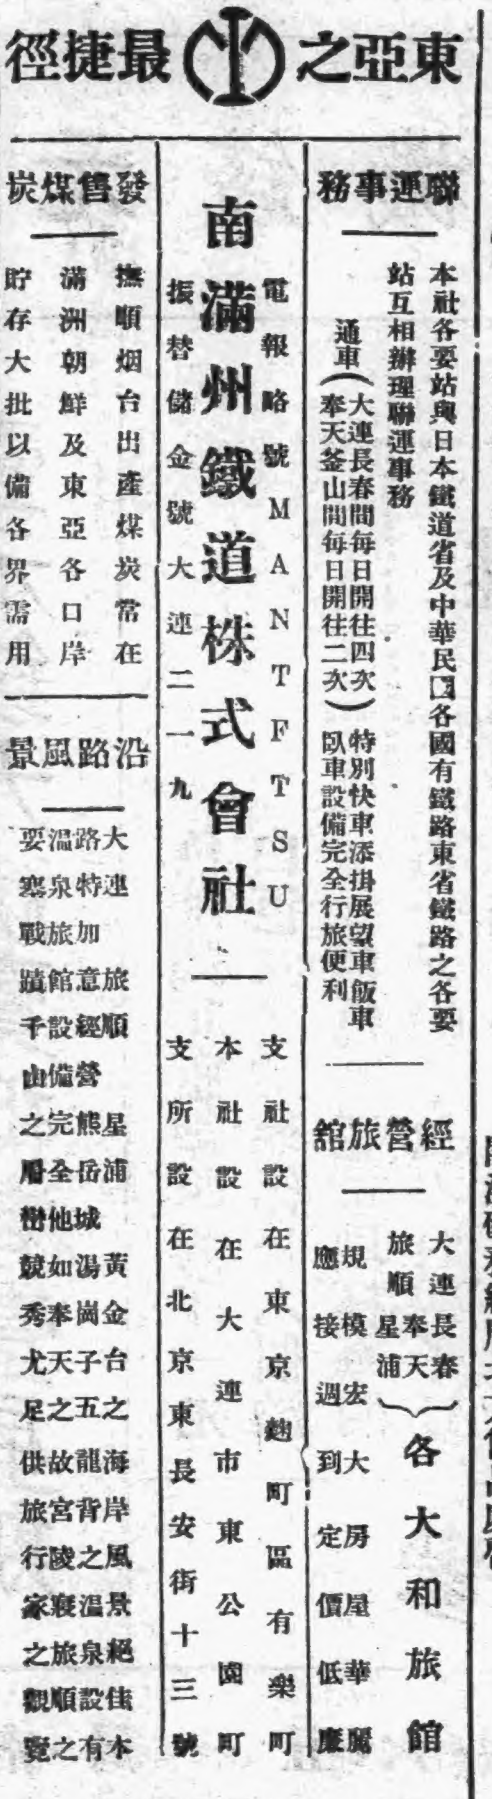 東亞之最捷徑
聯運事務
本社各要站與日本鐵道省及中華民國各國有鐵路東省鐵路之各要
站互相辦理聯運事務
通車(大連長春間每日開往四次 奉天釜山間每日開往二次)特別快車添掛展望車飯車
臥車設備完全行旅便利
經營旅館
大連 長春
旅順 奉天
星浦
各大和旅館
規模宏大房屋華麗
應接週到定價低廉
南滿州鐵道株式會社
電報略號MANTFTSU
振替儲金號大連二一九
支社設在東京麴町區有樂町
本社設在大連市東公園町
支所設在北京東長安街十三號
發售煤炭
撫順烟台出產煤炭常在
滿洲朝鮮及東亞各口岸
貯存大批以備各界需用
沿路風景
大連 旅順 星浦 黃金台之海岸風景絕佳本
路特加意經營熊岳城湯崗子五龍背之溫泉設有
溫泉旅館設備完全他如奉天之故宮陵寢旅順之
要塞戰蹟千山之層巒競秀尤足供旅行家之觀覽